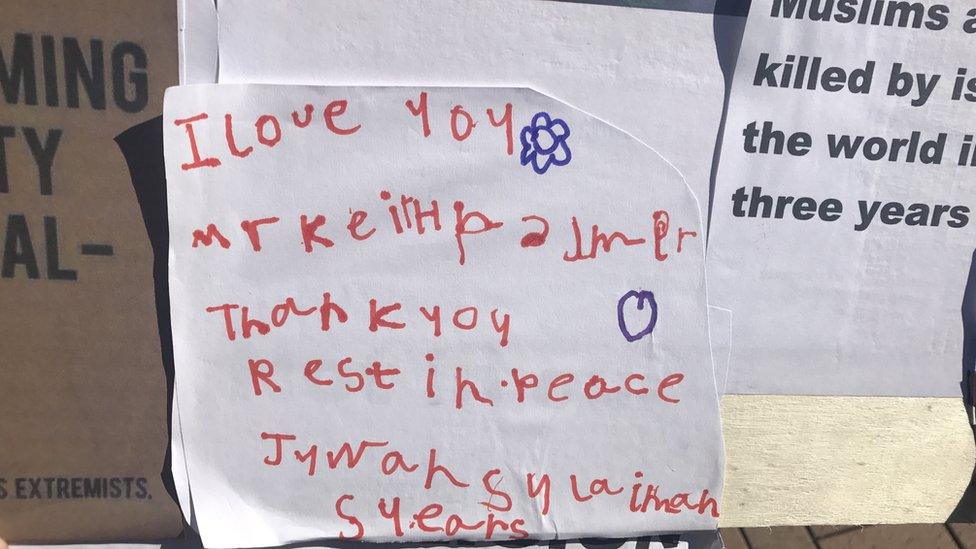 MING
TY
AL-
S EXTREMISTS.
I love yoy
mr keith palmer
Thank yoy
Rest in. peace
Jywan sylaiman
5 years
Muslims a
killed by is
the world i
three years